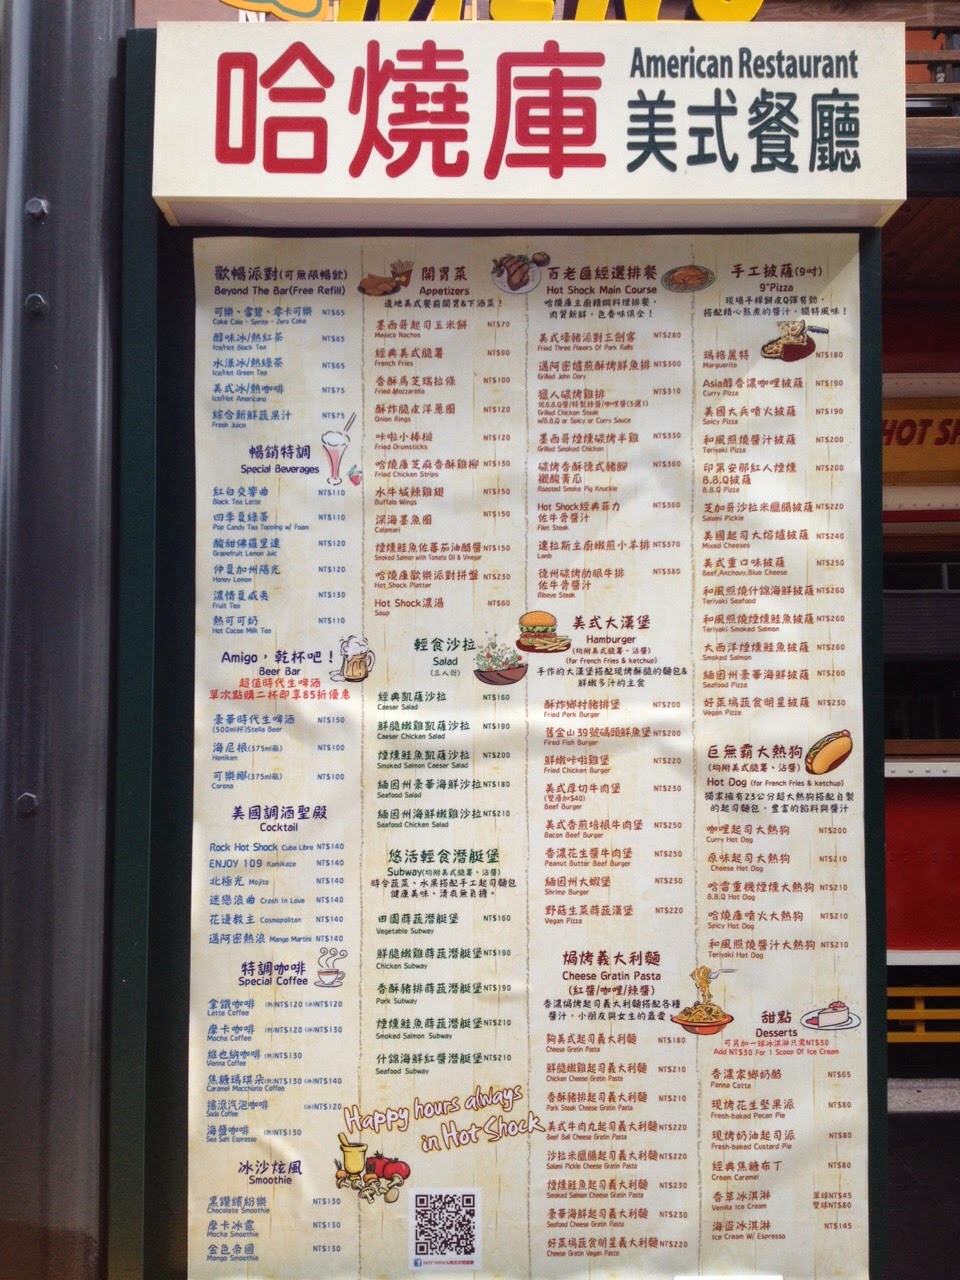 哈燒庫
American Restaurant
美式餐廳
歡暢派對(可無限暢飲)
Beyond The Bar(Free Refill)
可樂、雪碧、零卡可樂 NT$65
Coke Cola - Sprite - Zero Coke
醇味冰/熱紅茶 NT$65
Ice/Hot Black Tea
水漾冰/熱綠茶 NT$65
Ice/Hot Green Tea
美式冰/熱咖啡 NT$75
Ice/Hot Americano
綜合新鮮蔬果汁 NT$75
Fresh Juice
暢銷特調
Special Beverages
紅白交響曲 NT$110
Black Tea Latte
四季夏綠蒂 NT$110
Pop Candy Tea Topping w/ Foam
酸甜佛羅里達 NT$120
Grapefruit Lemon Juic
仲夏加州陽光 NT$120
Honey Lemon
濃情夏威夷 NT$130
Fruit Tea
熱可可奶 NT$110
Hot Cocoa Milk Tea
Amigo，乾杯吧！
Beer Bar
超值時代生啤酒
單次點購二杯即享85折優惠
豪華時代生啤酒 NT$150
(500ml杯)Stella Beer
海尼根(375ml瓶) NT$100
Heniken
可樂娜(375ml瓶) NT$100
Corona
美國調酒聖殿
Cocktail
Rock Hot Shock Cuba Libre NT$140
ENJOY 109 Kamikaze NT$140
北極光 Mojito NT$140
迷戀浪曲 Crash In Love NT$140
花邊教主 Cosmopolitan NT$140
邁阿密熱浪 Mango Martini NT$140
特調咖啡
Special Coffee
拿鐵咖啡 (熱)NT$120 (冰)NT$120
Latte Coffee
摩卡咖啡 (熱)NT$130 (冰)NT$120
Mocha Coffee
維也納咖啡 (熱)NT$130
Vienna Coffee
焦糖瑪琪朵(熱)NT$130 (冰)NT$140
Caramel Macchiato Coffee
搖滾汽泡咖啡 (冰)NT$120
Soda Coffee
海鹽咖啡 (熱)NT$130
Sea Salt Espresso
冰沙炫風
Smoothie
黑鑽繽紛樂 NT$130
Chocolate Smoothie
摩卡冰雹 NT$130
Mocha Smoothie
金色帝國 NT$130
Mango Smoothie
開胃菜
Appetizers
道地美式餐前開胃&下酒菜！
墨西哥起司玉米餅 NT$70
Mexico Nachos
經典美式脆薯 NT$90
French Fries
香酥馬芝瑞拉條 NT$100
Fried Mozzarella
酥炸脆皮洋蔥圈 NT$120
Onion Rings
咔啦小棒槌 NT$130
Fried Drumsticks
哈燒庫芝麻香酥雞柳 NT$130
Fried Chicken Strips
水牛城辣雞翅 NT$150
Buffalo Wings
深海墨魚圈 NT$150
Calamari
煙燻鮭魚佐蕃茄油醋醬 NT$150
Smoked Salmon with Tomato Oil & Vinegar
哈燒庫歡樂派對拼盤 NT$230
Hot Shock Platter
Hot Shock濃湯 NT$60
Soup
輕食沙拉
Salad
(三人份)
經典凱薩沙拉 NT$160
Caeser Salad
鮮脆嫩雞凱薩沙拉 NT$190
Caeser Chicken Salad
煙燻鮭魚凱薩沙拉 NT$200
Smoked Salmon Caeser Salad
緬因州豪華海鮮沙拉 NT$180
Seafood Salad
緬因州海鮮嫩雞沙拉 NT$210
Seafood Chicken Salad
悠活輕食潛艇堡
Subway(均附美式脆薯、沾醬)
時令蔬菜、水果搭配手工起司麵包
健康美味、清爽無負擔。
田園蒔蔬潛艇堡 NT$160
Vegetable Subway
鮮脆嫩雞蒔蔬潛艇堡 NT$190
Chicken Subway
香酥豬排蒔蔬潛艇堡 NT$190
Pork Subway
煙燻鮭魚蒔蔬潛艇堡 NT$210
Smoked Salmon Subway
什錦海鮮紅醬潛艇堡 NT$210
Seafood Subway
Happy hours always
in Hot Shock
百老匯經選排餐
Hot Shock Main Course
哈燒庫主廚精緻料理排餐，
肉質新鮮，色香味俱全！
美式壕豬派對三劍客 NT$280
Fried Three Flavors Of Pork Rolls
邁阿密爐煎酥烤鮮魚排 NT$300
Grilled John Dory
獵人碳烤雞排 NT$310
Grilled Chicken Steak
w/B.B.Q or Spicy or Curry Sauce
墨西哥煙燻碳烤半雞 NT$330
Grilled Smoked Chicken
碳烤香酥德式豬腳 NT$360
襯酸黃瓜
Roasted Smoke Pig Knuckle
Hot Shock經典菲力 NT$360
佐牛骨醬汁
Filet Steak
達拉斯主廚嫩煎小羊排 NT$370
Lamb
德州碳烤肋眼牛排 NT$380
佐牛骨醬汁
Ribeye Steak
美式大漢堡
Hamburger
(均附美式脆薯、沾醬)
(for French Fries & ketchup)
手作的大漢堡搭配現烤酥脆的麵包&
鮮嫩多汁的主食
酥炸鄉村豬排堡 NT$200
Fried Pork Burger
舊金山39號碼頭鮮魚堡 NT$200
Fired Fish Burger
鮮嫩咔啦雞堡 NT$220
Fried Chicken Burger
美式厚切牛肉堡 NT$230
(雙層加$40)
Beef Burger
美式香煎培根牛肉堡 NT$250
Bacon Beef Burger
香濃花生醬牛肉堡 NT$250
Peanut Butter Beef Burger
緬因州大蝦堡 NT$230
Shrimp Burger
野菇生菜蒔蔬漢堡 NT$220
Vegan Pizza
焗烤義大利麵
Cheese Gratin Pasta
(紅醬/咖哩/辣醬)
香濃焗烤起司義大利麵搭配各種
醬汁，小朋友與女生的最愛。
狗美式起司義大利麵 NT$180
Cheese Gratin Pasta
鮮脆嫩雞起司義大利麵 NT$210
Chicken Cheese Gratin Pasta
香酥豬排起司義大利麵 NT$210
Pork Steak Cheese Gratin Pasta
美式牛肉丸起司義大利麵 NT$220
Beef Ball Cheese Gratin Pasta
沙拉米臘腸起司義大利麵 NT$220
Salami Pickle Cheese Gratin Pasta
煙燻鮭魚起司義大利麵 NT$230
Smoked Salmon Cheese Gratin Pasta
豪華海鮮起司義大利麵 NT$230
Seafood Cheese Gratin Pasta
好萊塢蔬食明星義大利麵 NT$220
Cheese Gratin Vegan Pasta
手工披薩(9吋)
9"Pizza
現場手桿餅皮Q彈有勁，
搭配精心熬煮的醬汁，獨特風味！
瑪格麗特 NT$180
Marguerite
Asia醇香濃咖哩披薩 NT$190
Curry Pizza
美國大兵噴火披薩 NT$190
Spicy Pizza
和風照燒醬汁披薩 NT$200
Teriyaki Pizza
印第安那紅人煙燻 NT$200
B.B.Q披薩
B.B.Q Pizza
芝加哥沙拉米臘腸披薩 NT$220
Salami Pickle
美國起司大焰爐披薩 NT$240
Mixed Cheeses
美式重口味披薩 NT$250
Beef,Anchovy,Blue Cheese
和風照燒什錦海鮮披薩 NT$260
Teriyaki Seafood
和風照燒煙燻鮭魚披薩 NT$260
Teriyaki Smoked Salmon
大西洋煙燻鮭魚披薩 NT$260
Smoked Salmon
緬因州豪華海鮮披薩 NT$260
Seafood Pizza
好萊塢蔬食明星披薩 NT$230
Vegan Pizza
巨無霸大熱狗
(均附美式脆薯、沾醬)
Hot Dog (for French Fries & ketchup)
獨家擁有23公分超大熱狗搭配自製
的起司麵包，豐富的餡料與醬汁
咖哩起司大熱狗 NT$200
Curry Hot Dog
原味起司大熱狗 NT$210
Cheese Hot Dog
哈雷重機煙燻大熱狗 NT$210
B.B.Q Hot Dog
哈燒庫噴火大熱狗 NT$210
Spicy Hot Dog
和風照燒醬汁大熱狗 NT$210
Teriyaki Hot Dog
甜點
Desserts
可另加一球冰淇淋只需NT$30
Add NT$30 For 1 Scoop Of Ice Cream
香濃家鄉奶酪 NT$65
Panna Cotta
現烤花生堅果派 NT$80
Fresh-baked Pecan Pie
現烤奶油起司派 NT$80
Fresh-baked Custard Pie
經典焦糖布丁 NT$80
Cream Caramel
香草冰淇淋 單球NT$45
Vanilla Ice Cream 雙球NT$80
海盜冰淇淋 NT$145
Ice Cream W/ Espresso
HOT SH